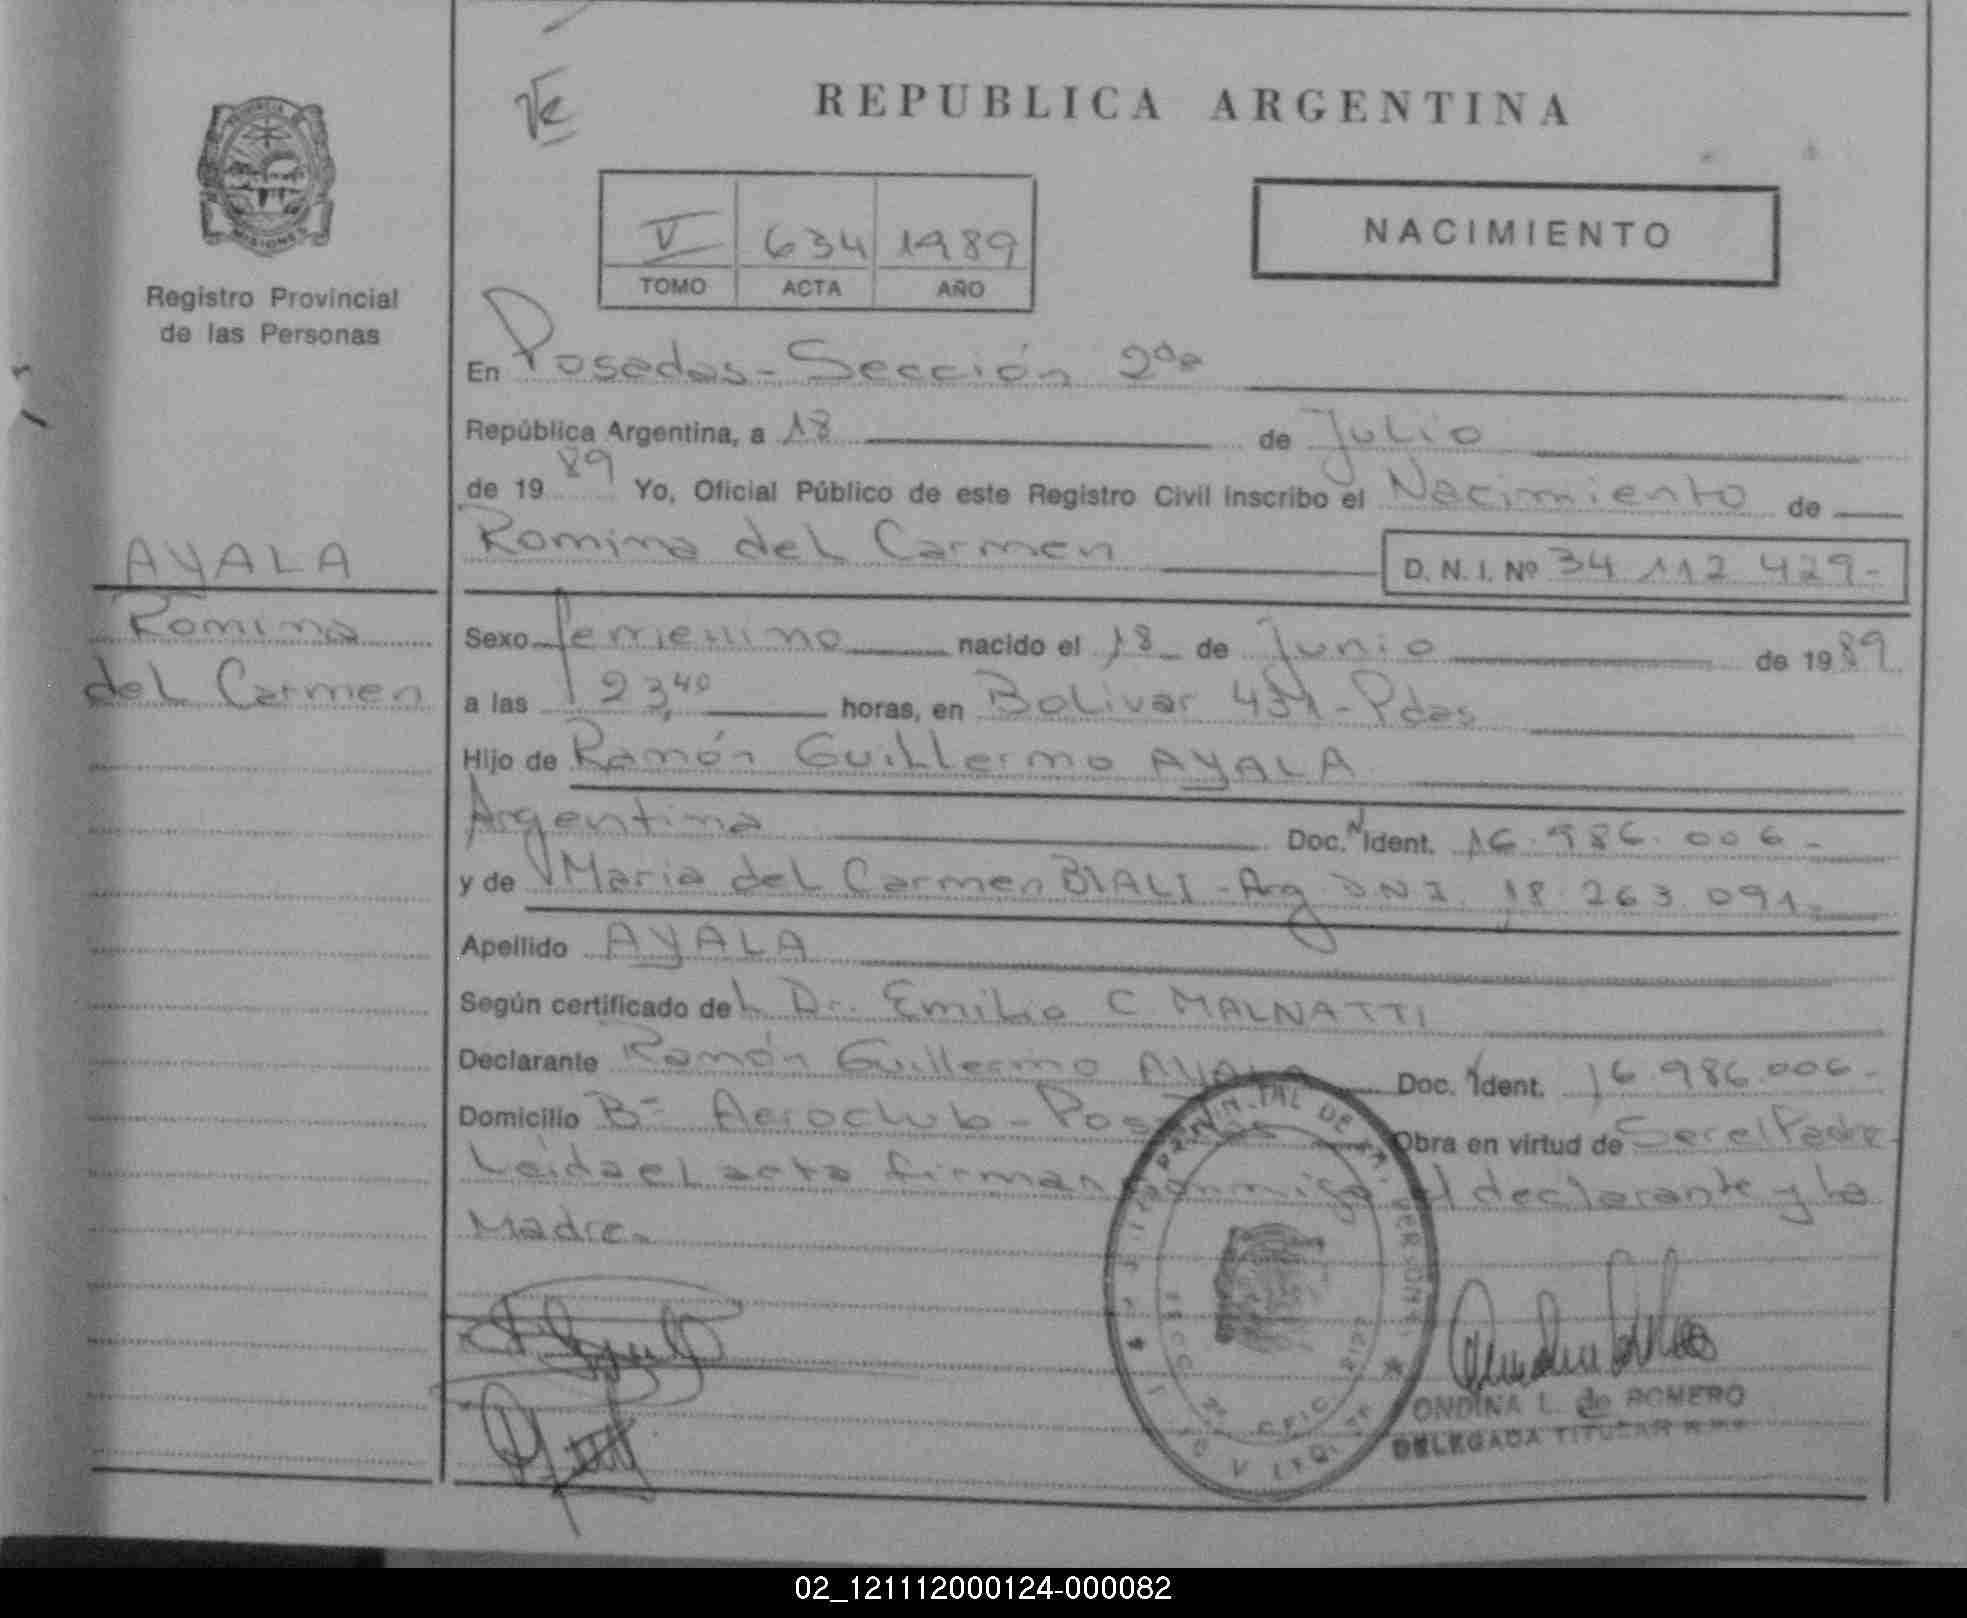 REPUBLICA ARGENTINA
PROVINCIA
MISIONES
Registro Provincial
de las Personas
NACIMIENTO
V 634 1989
TOMO ACTA AÑO
En Posadas - Sección 2da
República Argentina, a 18 de Julio
de 1989 Yo, Oficial Público de este Registro Civil inscribo el Nacimiento de
AYALA
Romina del Carmen
D. N. I. Nº 34 112 429-
Romina
del Carmen
Sexo femenino nacido el 18 de Junio de 1989
a las 23,40 horas, en Bolivar 431 - Pdas
Hijo de Ramón Guillermo AYALA
Argentina Doc. Ident. 16.986.006-
y de Maria del Carmen BIALI - Arg D.N.I. 18.263.091-
Apellido AYALA
Según certificado del Dr. Emilio C MALNATTI
Declarante Ramón Guillermo AYALA Doc. Ident. 16.986.006-
Domicilio Bº Aeroclub - Posadas Obra en virtud de Ser el Padre
Leida el acta firman conmigo el declarante y la
Madre-
ONDINA L. de ROMERO
DELEGADA TITULAR
02_121112000124-000082